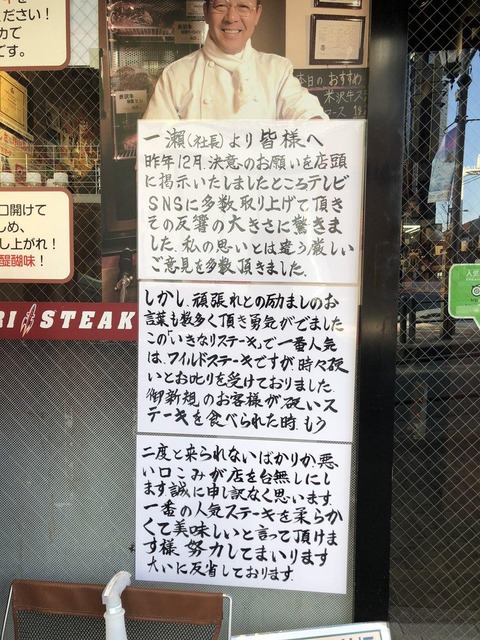 ださい！
カで
です。
本日のおすすめ
米沢牛ス
一瀬(社長)より皆様へ
昨年12月.決意のお願いを店頭
に掲示いたしましたところテレビ
SNSに多数取り上げて頂き
その反響の大きさに驚きま
した.私の思いとは違う厳しい
ご意見を多数頂きました.
しかし.頑張れとの励ましのお
言葉も数多く頂き勇気がでました
この「いきなりステーキ」で一番人気
は、ワイルドステーキですが.時々硬
いとお叱りを受けておりました
御新規のお客様が硬いス
テーキを食べられた時.もう
二度と来られないばかりか、悪
い口こみが店を台無しにし
ます.誠に申し訳なく思います
一番の人気ステーキを柔らか
くて美味しいと言って頂けま
す様.努力してまいります
大いに反省しております.
口開けて
しめ、
し上がれ！
醍醐味！
RI STEAK
人気